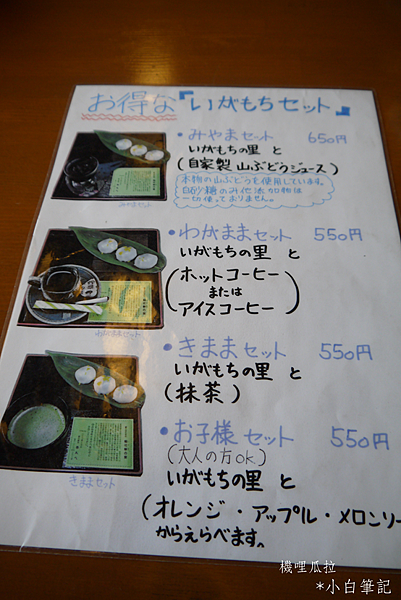 お得な『いがもちセット』
・みやまセット 650円
いがもちの里 と
(自家製 山ぶどうジュース)
本物の山ぶどうを使用しています。
白砂糖のみで添加物は
一切使っておりません。
みやまセット
・わがままセット 550円
いがもちの里 と
(ホットコーヒー
または
アイスコーヒー)
わがままセット
・きままセット 550円
いがもちの里 と
(抹茶)
・お子様セット 550円
(大人の方OK)
きままセット
いがもちの里 と
(オレンジ・アップル・メロンソー
からえらべます。
機哩瓜拉
*小白筆記